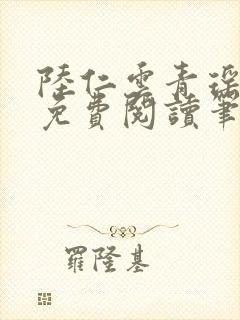 陸仁雲青瑤
免費閱讀筆
羅隆基